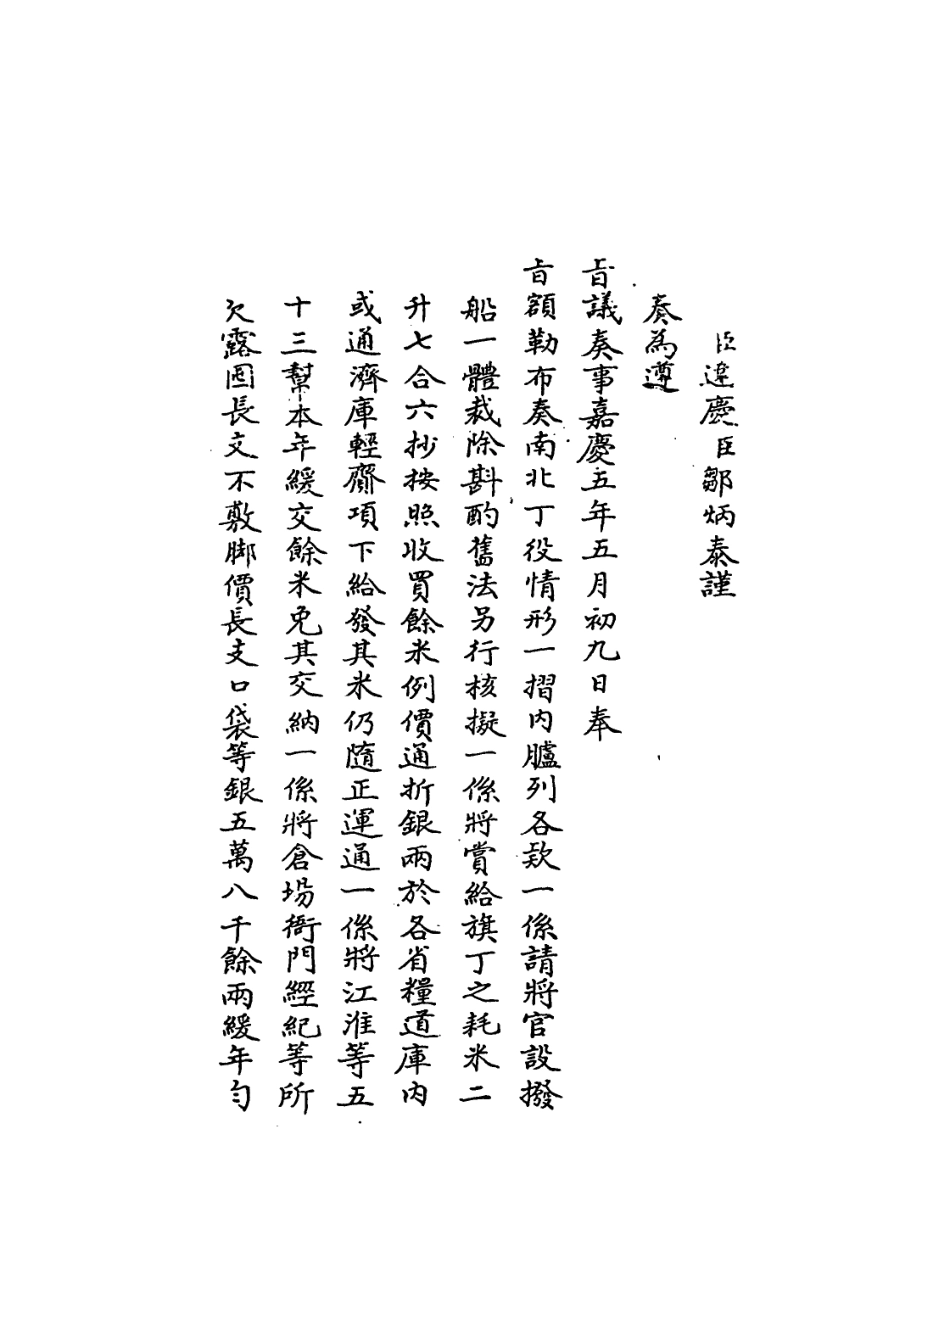 臣達慶臣鄒炳泰謹
奏為遵
旨議奏事嘉慶五年五月初九日奉
旨額勒布奏南北丁役情形一摺內臚列各款一係請將官設撥
船一體裁除斟酌舊法另行核擬一係將賞給旗丁之耗米二
升七合六抄按照收買餘米例價通折銀兩於各省糧道庫內
或通濟庫輕齎項下給發其米仍隨正運通一係將江淮等五
十三幫本年緩交餘米免其交納一係將倉場衙門經紀等所
欠露囤長支不敷腳價長支口袋等銀五萬八千餘兩緩年勻